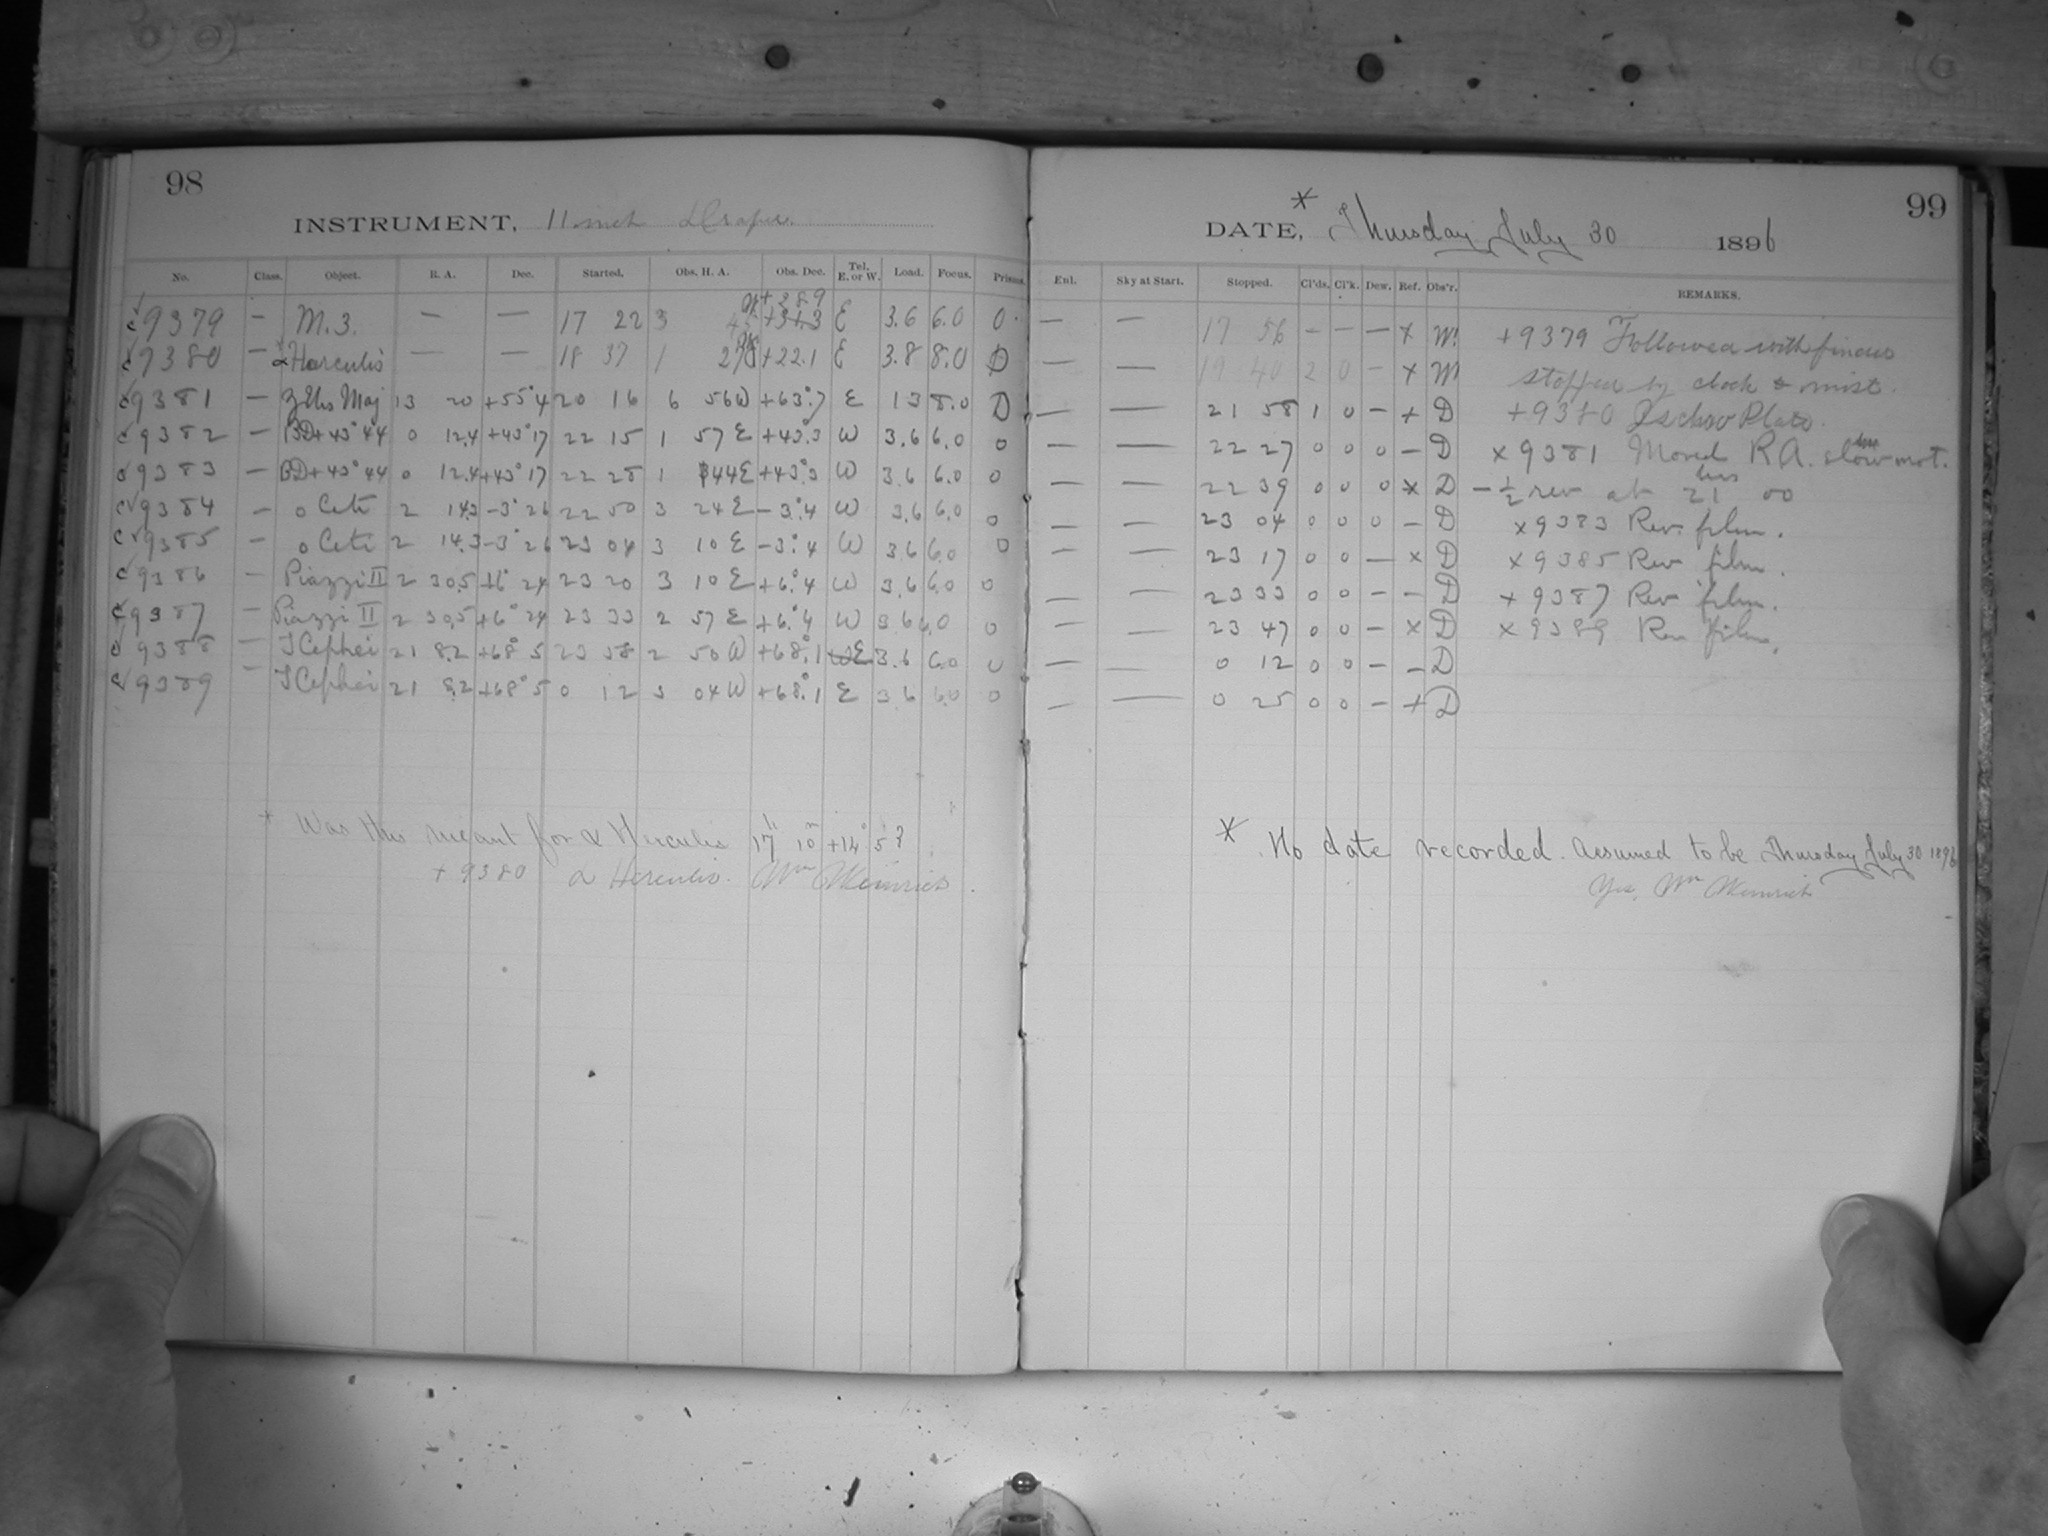 98
INSTRUMENT, 11 inch Draper.
No. Class. Object. R. A. Dec. Started. Obs. H. A. Obs. Dec. Tel. E. or W. Load. Focus. Prisms.
c 9379 — M. 3. — — 17 22 3 +28.9 E 3.6 6.0 0
c 9380 — * Herculis — — 18 37 1 +22.1 E 3.8 8.0 D
c 9381 — Urs Maj 13 20 +55° 4 20 16 6 56 W +63°.7 E 13 8.0 D
c 9382 — BD+43° 44 0 12.4 +43° 17 22 15 1 57 E +43°.3 W 3.6 6.0 0
c 9383 — BD+43° 44 0 12.4 +43° 17 22 28 1 44 E +43°.3 W 3.6 6.0 0
c 9384 — o Ceti 2 14.3 -3° 26 22 50 3 24 E -3°.4 W 3.6 6.0 0
c 9385 — o Ceti 2 14.3 -3° 26 23 04 3 10 E -3°.4 W 3.6 6.0 0
c 9386 — Piazzi II 2 30.5 +6° 24 23 20 3 10 E +6°.4 W 3.6 6.0 0
c 9387 — Piazzi II 2 30.5 +6° 24 23 33 2 57 E +6°.4 W 3.6 6.0 0
c 9388 — T Cephei 21 8.2 +68° 5 23 58 2 50 W +68°.1 E 3.6 6.0 0
c 9389 — T Cephei 21 8.2 +68° 5 0 12 3 04 W +68°.1 E 3.6 6.0 0
* Was this meant for α Herculis 17h 10m +14° 5?
+ 9380 α Herculis. Wm
99
DATE, * Thursday July 30 1896
Enl. Sky at Start. Stopped. Cl'ds. Cl'k. Dew. Ref. Obs'r. REMARKS.
— — 17 56 — — — + W. +9379 Followed with finder
— — 19 40 2 0 — + W stopped by clock & mist.
— — 21 58 1 0 — + D +9380 Plate.
— — 22 27 0 0 0 — D ×9381 Moved R.A. slow mot.
— — 22 39 0 0 0 × D -½ rev at 21 00
— — 23 04 0 0 0 — D ×9383 Rev. film.
— — 23 17 0 0 — × D ×9385 Rev film.
— — 23 33 0 0 — — D ×9387 Rev film.
— — 23 47 0 0 — × D ×9389 Rev film.
— — 0 12 0 0 — — D
— — 0 25 0 0 — + D
* No date recorded. Assumed to be Thursday July 30 1896
Yes, Wm